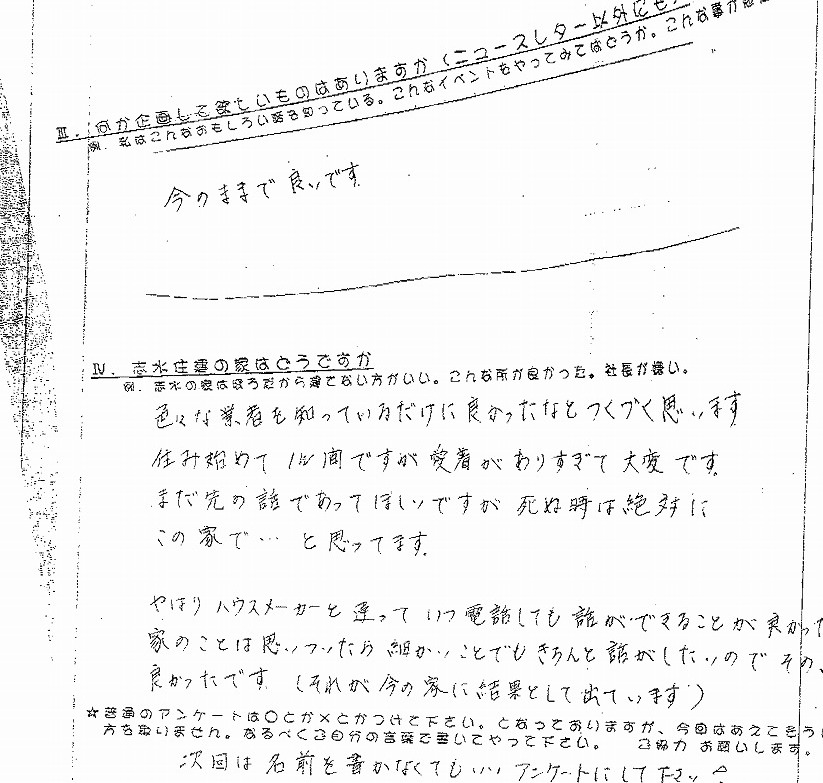 Ⅲ. 何か企画して欲しいものはありますか（ニュースレター以外にも
例. 私はこんなおもしろい話を知っている。こんなイベントをやってみてはどうか。こんな事が
今のままで良いです
Ⅳ. 志水住建の家はどうですか
例. 志水の家はぼろだから建てない方がいい。こんな所が良かった。社長が嫌い。
色々な業者を知っているだけに良かったなとつくづく思います
住み始めて 1ヶ間ですが愛着がありすぎて大変です
まだ先の話であってほしいですが 死ぬ時は絶対に
この家で… と思ってます
やはり ハウスメーカーと違って いつ電話しても 話ができることが良かった
家のことは思いついたら細かいことでもきちんと話がしたいので その、
良かったです （それが今の家に結果として出ています）
☆普通のアンケートは○とか×とかつけて下さい。となっておりますが、今回はあえてそう
方を取りません。なるべくご自分の言葉で書いてやって下さい。 ご協力 お願いします。
次回は 名前を書かなくてもいい アンケートにして下さい